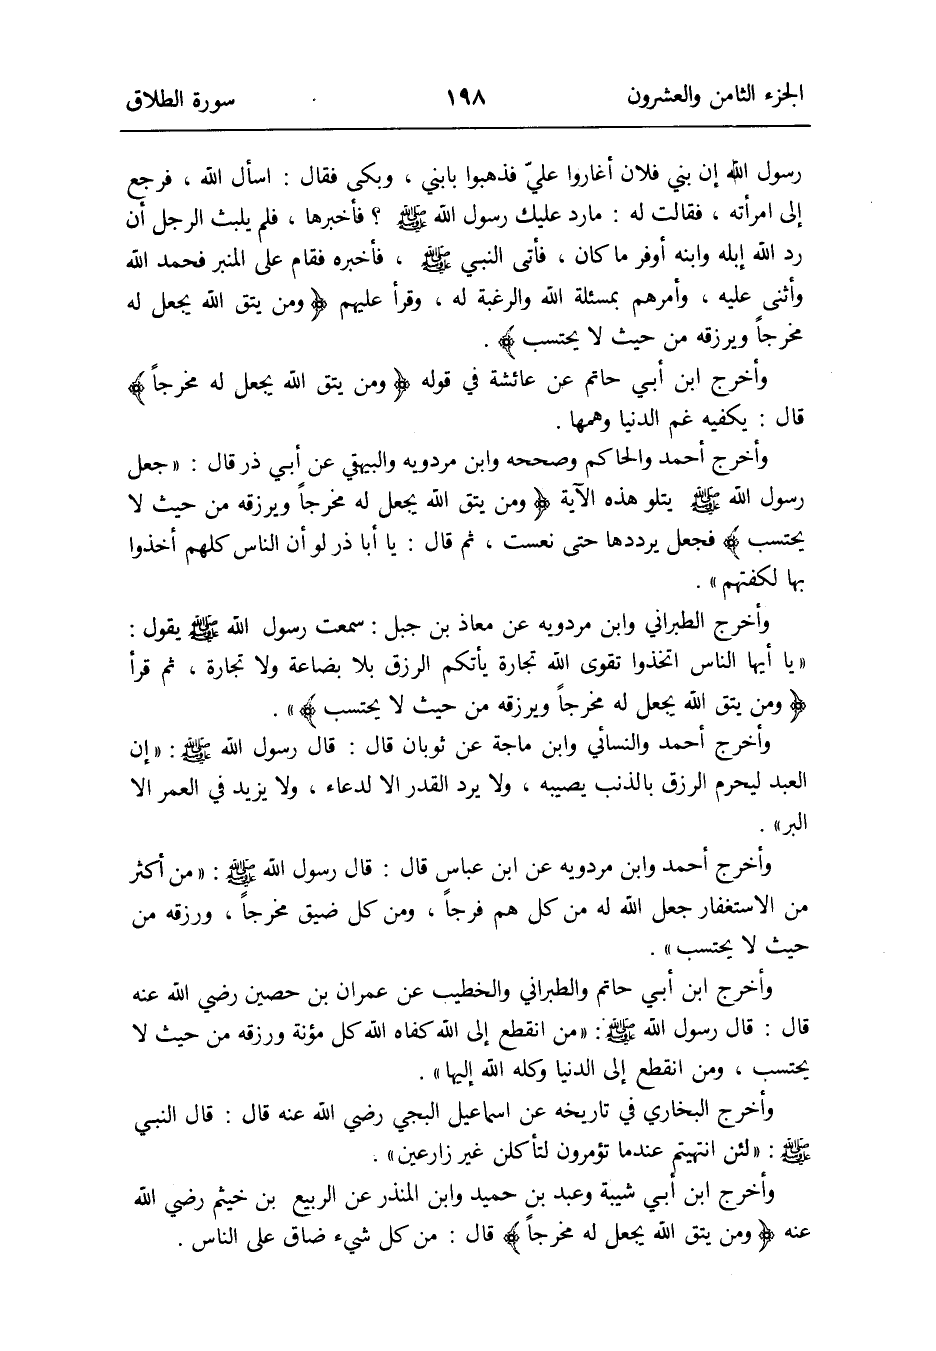 الجزء الثامن والعشرون ١٩٨ سورة الطلاق
رسول الله إن بني فلان أغاروا عليّ فذهبوا بابني ، وبكى فقال : اسأل الله ، فرجع
إلى امرأته ، فقالت له : مارد عليك رسول الله ﷺ ؟ فأخبرها ، فلم يلبث الرجل أن
رد الله إبله وابنه أوفر ما كان ، فأتى النبي ﷺ ، فأخبره فقام على المنبر فحمد الله
وأثنى عليه ، وأمرهم بمسئلة الله والرغبة له ، وقرأ عليهم ﴿ ومن يتق الله يجعل له
مخرجاً ويرزقه من حيث لا يحتسب ﴾ .
وأخرج ابن أبي حاتم عن عائشة في قوله ﴿ ومن يتق الله يجعل له مخرجاً ﴾
قال : يكفيه غم الدنيا وهمها .
وأخرج أحمد والحاكم وصححه وابن مردويه والبيهقي عن أبي ذر قال : «جعل
رسول الله ﷺ يتلو هذه الآية ﴿ ومن يتق الله يجعل له مخرجاً ويرزقه من حيث لا
يحتسب ﴾ فجعل يرددها حتى نعست ، ثم قال : يا أبا ذر لو أن الناس كلهم أخذوا
بها لكفتهم» .
وأخرج الطبراني وابن مردويه عن معاذ بن جبل : سمعت رسول الله ﷺ يقول :
«يا أيها الناس اتخذوا تقوى الله تجارة يأتكم الرزق بلا بضاعة ولا تجارة ، ثم قرأ
﴿ ومن يتق الله يجعل له مخرجاً ويرزقه من حيث لا يحتسب ﴾» .
وأخرج أحمد والنسائي وابن ماجة عن ثوبان قال : قال رسول الله ﷺ : «إن
العبد ليحرم الرزق بالذنب يصيبه ، ولا يرد القدر الا لدعاء ، ولا يزيد في العمر الا
البر» .
وأخرج أحمد وابن مردويه عن ابن عباس قال : قال رسول الله ﷺ : «من أكثر
من الاستغفار جعل الله له من كل هم فرجاً ، ومن كل ضيق مخرجاً ، ورزقه من
حيث لا يحتسب» .
وأخرج ابن أبي حاتم والطبراني والخطيب عن عمران بن حصين رضي الله عنه
قال : قال رسول الله ﷺ : «من انقطع إلى الله كفاه الله كل مؤنة ورزقه من حيث لا
يحتسب ، ومن انقطع إلى الدنيا وكله الله إليها» .
وأخرج البخاري في تاريخه عن اسماعيل البجي رضي الله عنه قال : قال النبي
ﷺ : «لئن انتهيتم عندما تؤمرون لتأكلن غير زارعين» .
وأخرج ابن أبي شيبة وعبد بن حميد وابن المنذر عن الربيع بن خيثم رضي الله
عنه ﴿ ومن يتق الله يجعل له مخرجاً ﴾ قال : من كل شيء ضاق على الناس .